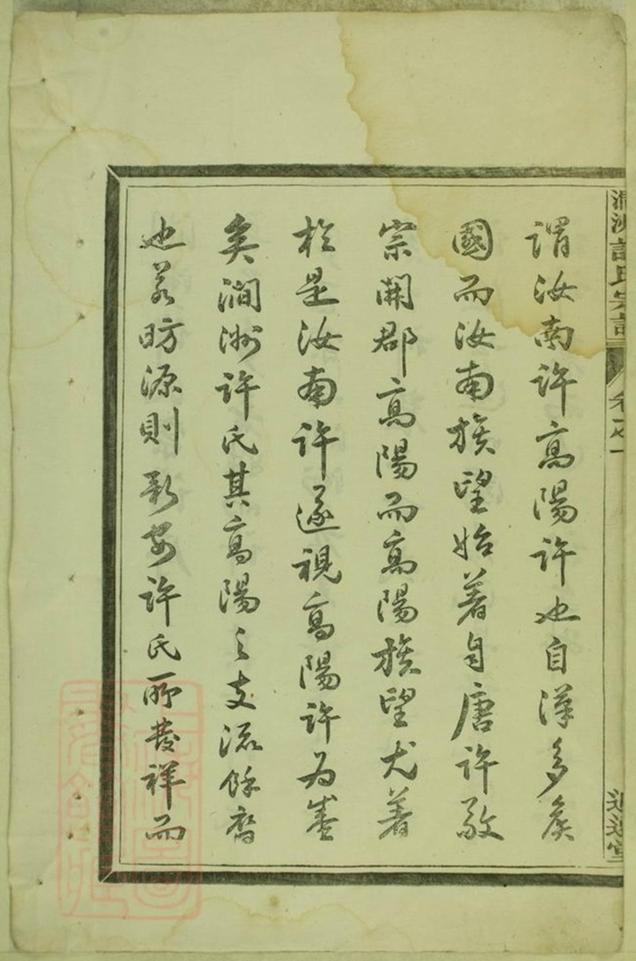 謂汝南許高陽許也自漢多矦
國而汝南族望始著自唐許敬
宗開郡高陽而高陽族望尤著
於是汝南許遂視高陽許為盛
矣澗洲許氏其高陽之支流餘裔
也若昉源則新安許氏所發祥而
澗洲許氏宗譜
卷之一